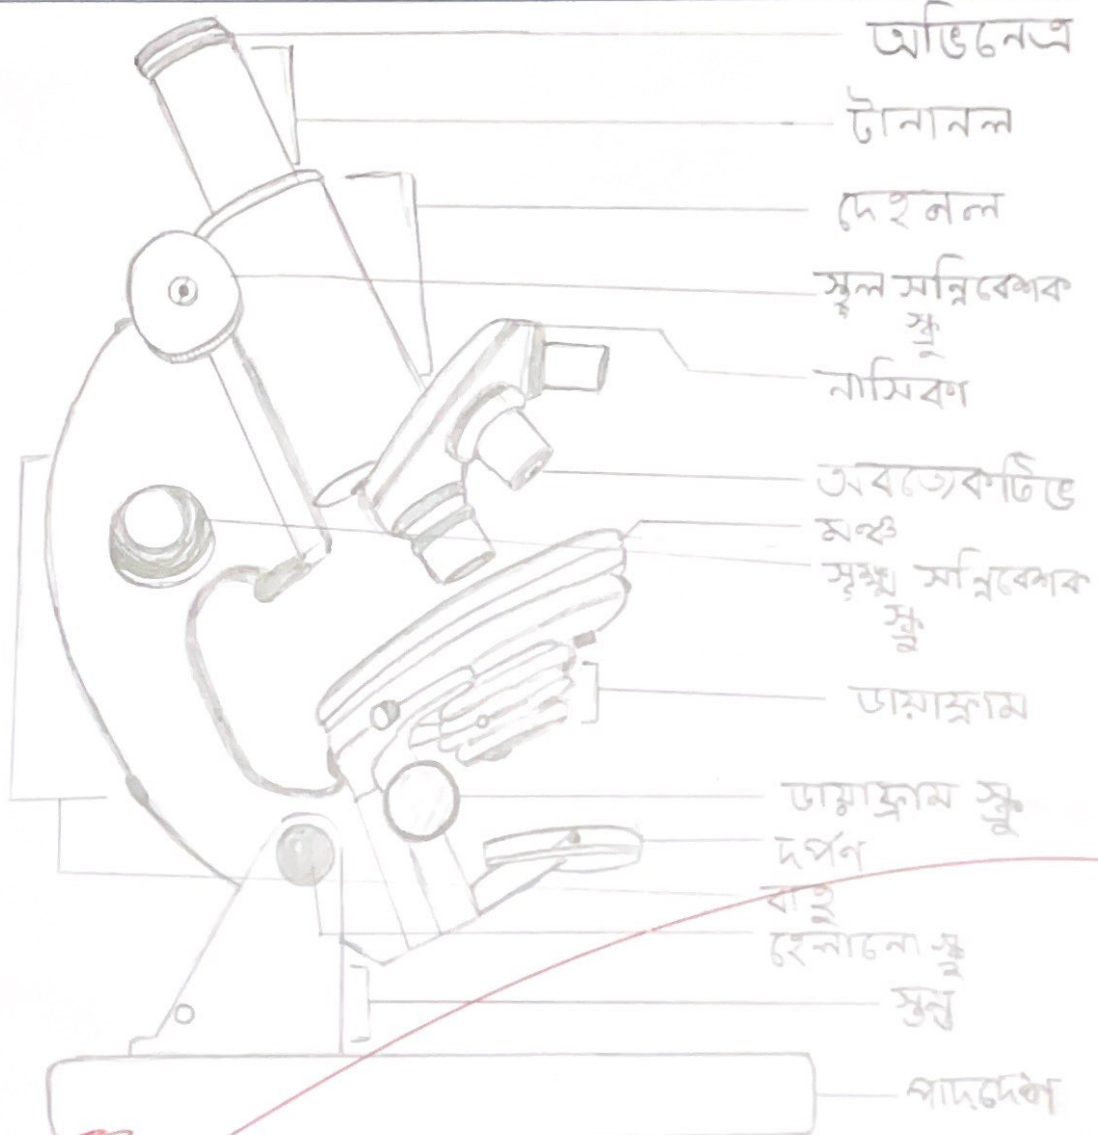 অভিনেত্র
টানানল
দেহনল
স্থূল সন্নিবেশক
স্ক্রু
নাসিকা
অবজেকটিভ
মঞ্চ
সূক্ষ্ম সন্নিবেশক
স্ক্রু
ডায়াফ্রাম
ডায়াফ্রাম স্ক্রু
দর্পণ
বাহু
হেলানো স্ক্রু
স্তম্ভ
পাদদেশ